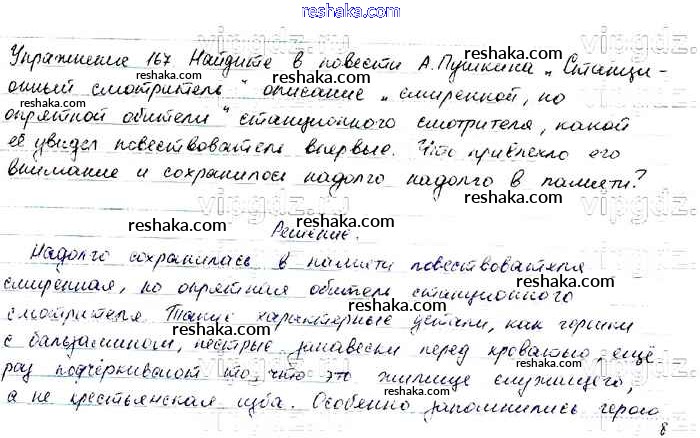 reshaka.com
Упражнение 167 Найдите в повести А. Пушкина „Станци-
онный смотритель" описание „смиренной, но
опрятной обители" станционного смотрителя, какой
её увидел повествователь впервые. Что привлекло его
внимание и сохранилось надолго надолго в памяти?
Решение.
Надолго сохранилась в памяти повествователя
смиренная, но опрятная обитель станционного
смотрителя. Такие характерные детали, как горшки
с бальзамином, пёстрые занавески перед кроватью, ещё
раз подчёркивают то, что это жилище служащего,
а не крестьянская изба. Особенно запомнились герою
8